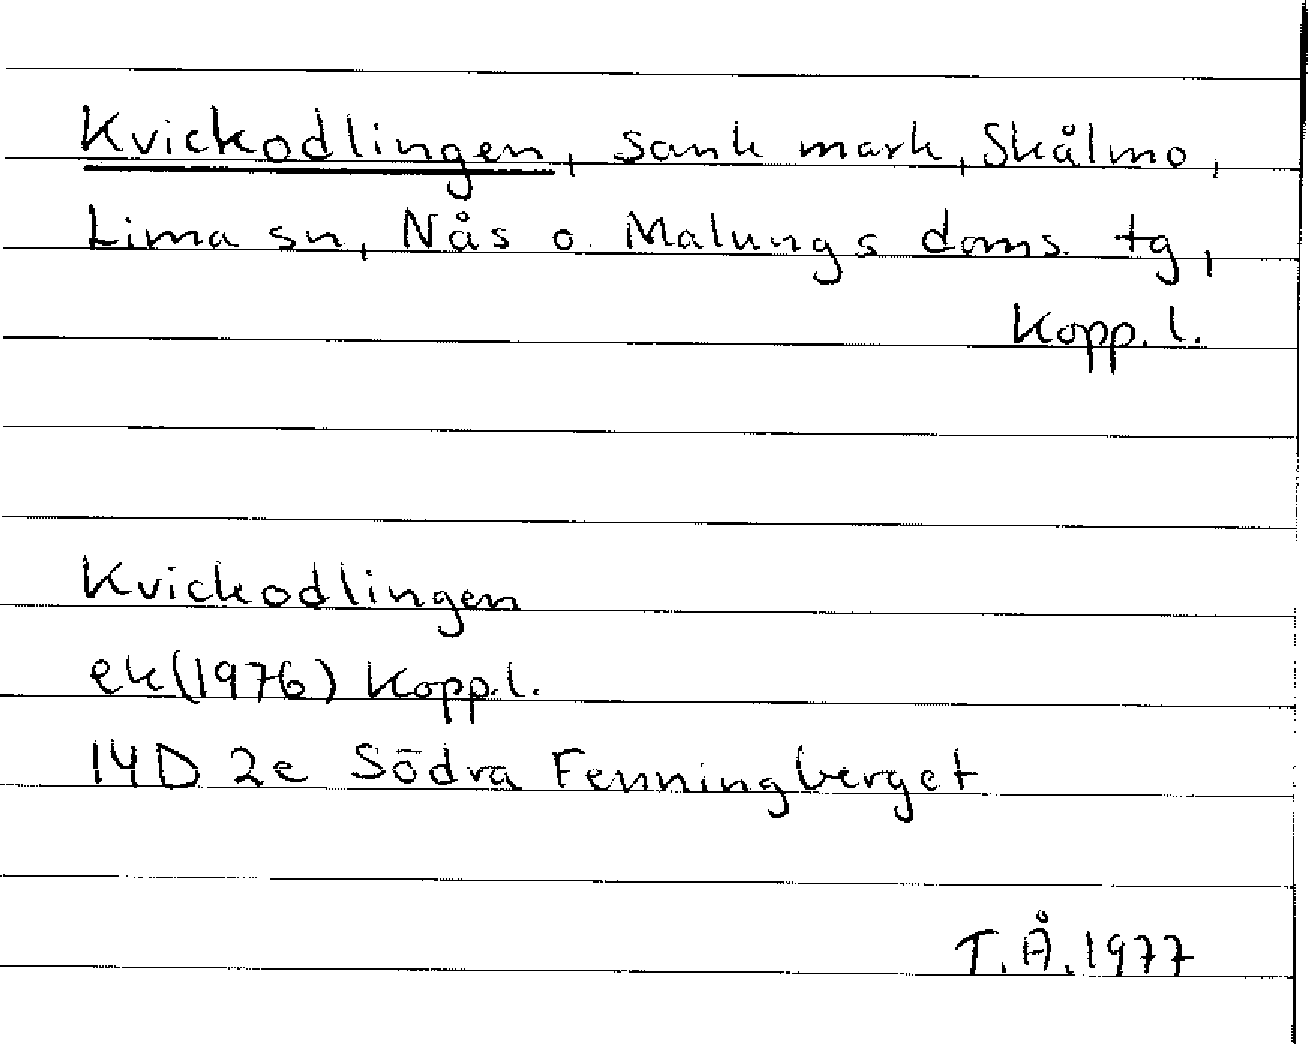 Kvickodlingen, sank mark, Skålmo,
Lima sn, Nås o. Malungs doms. tg,
Kopp. l.
Kvickodlingen
ek(1976) Kopp.l.
14D 2e Södra Fenningberget
T.Å.1977